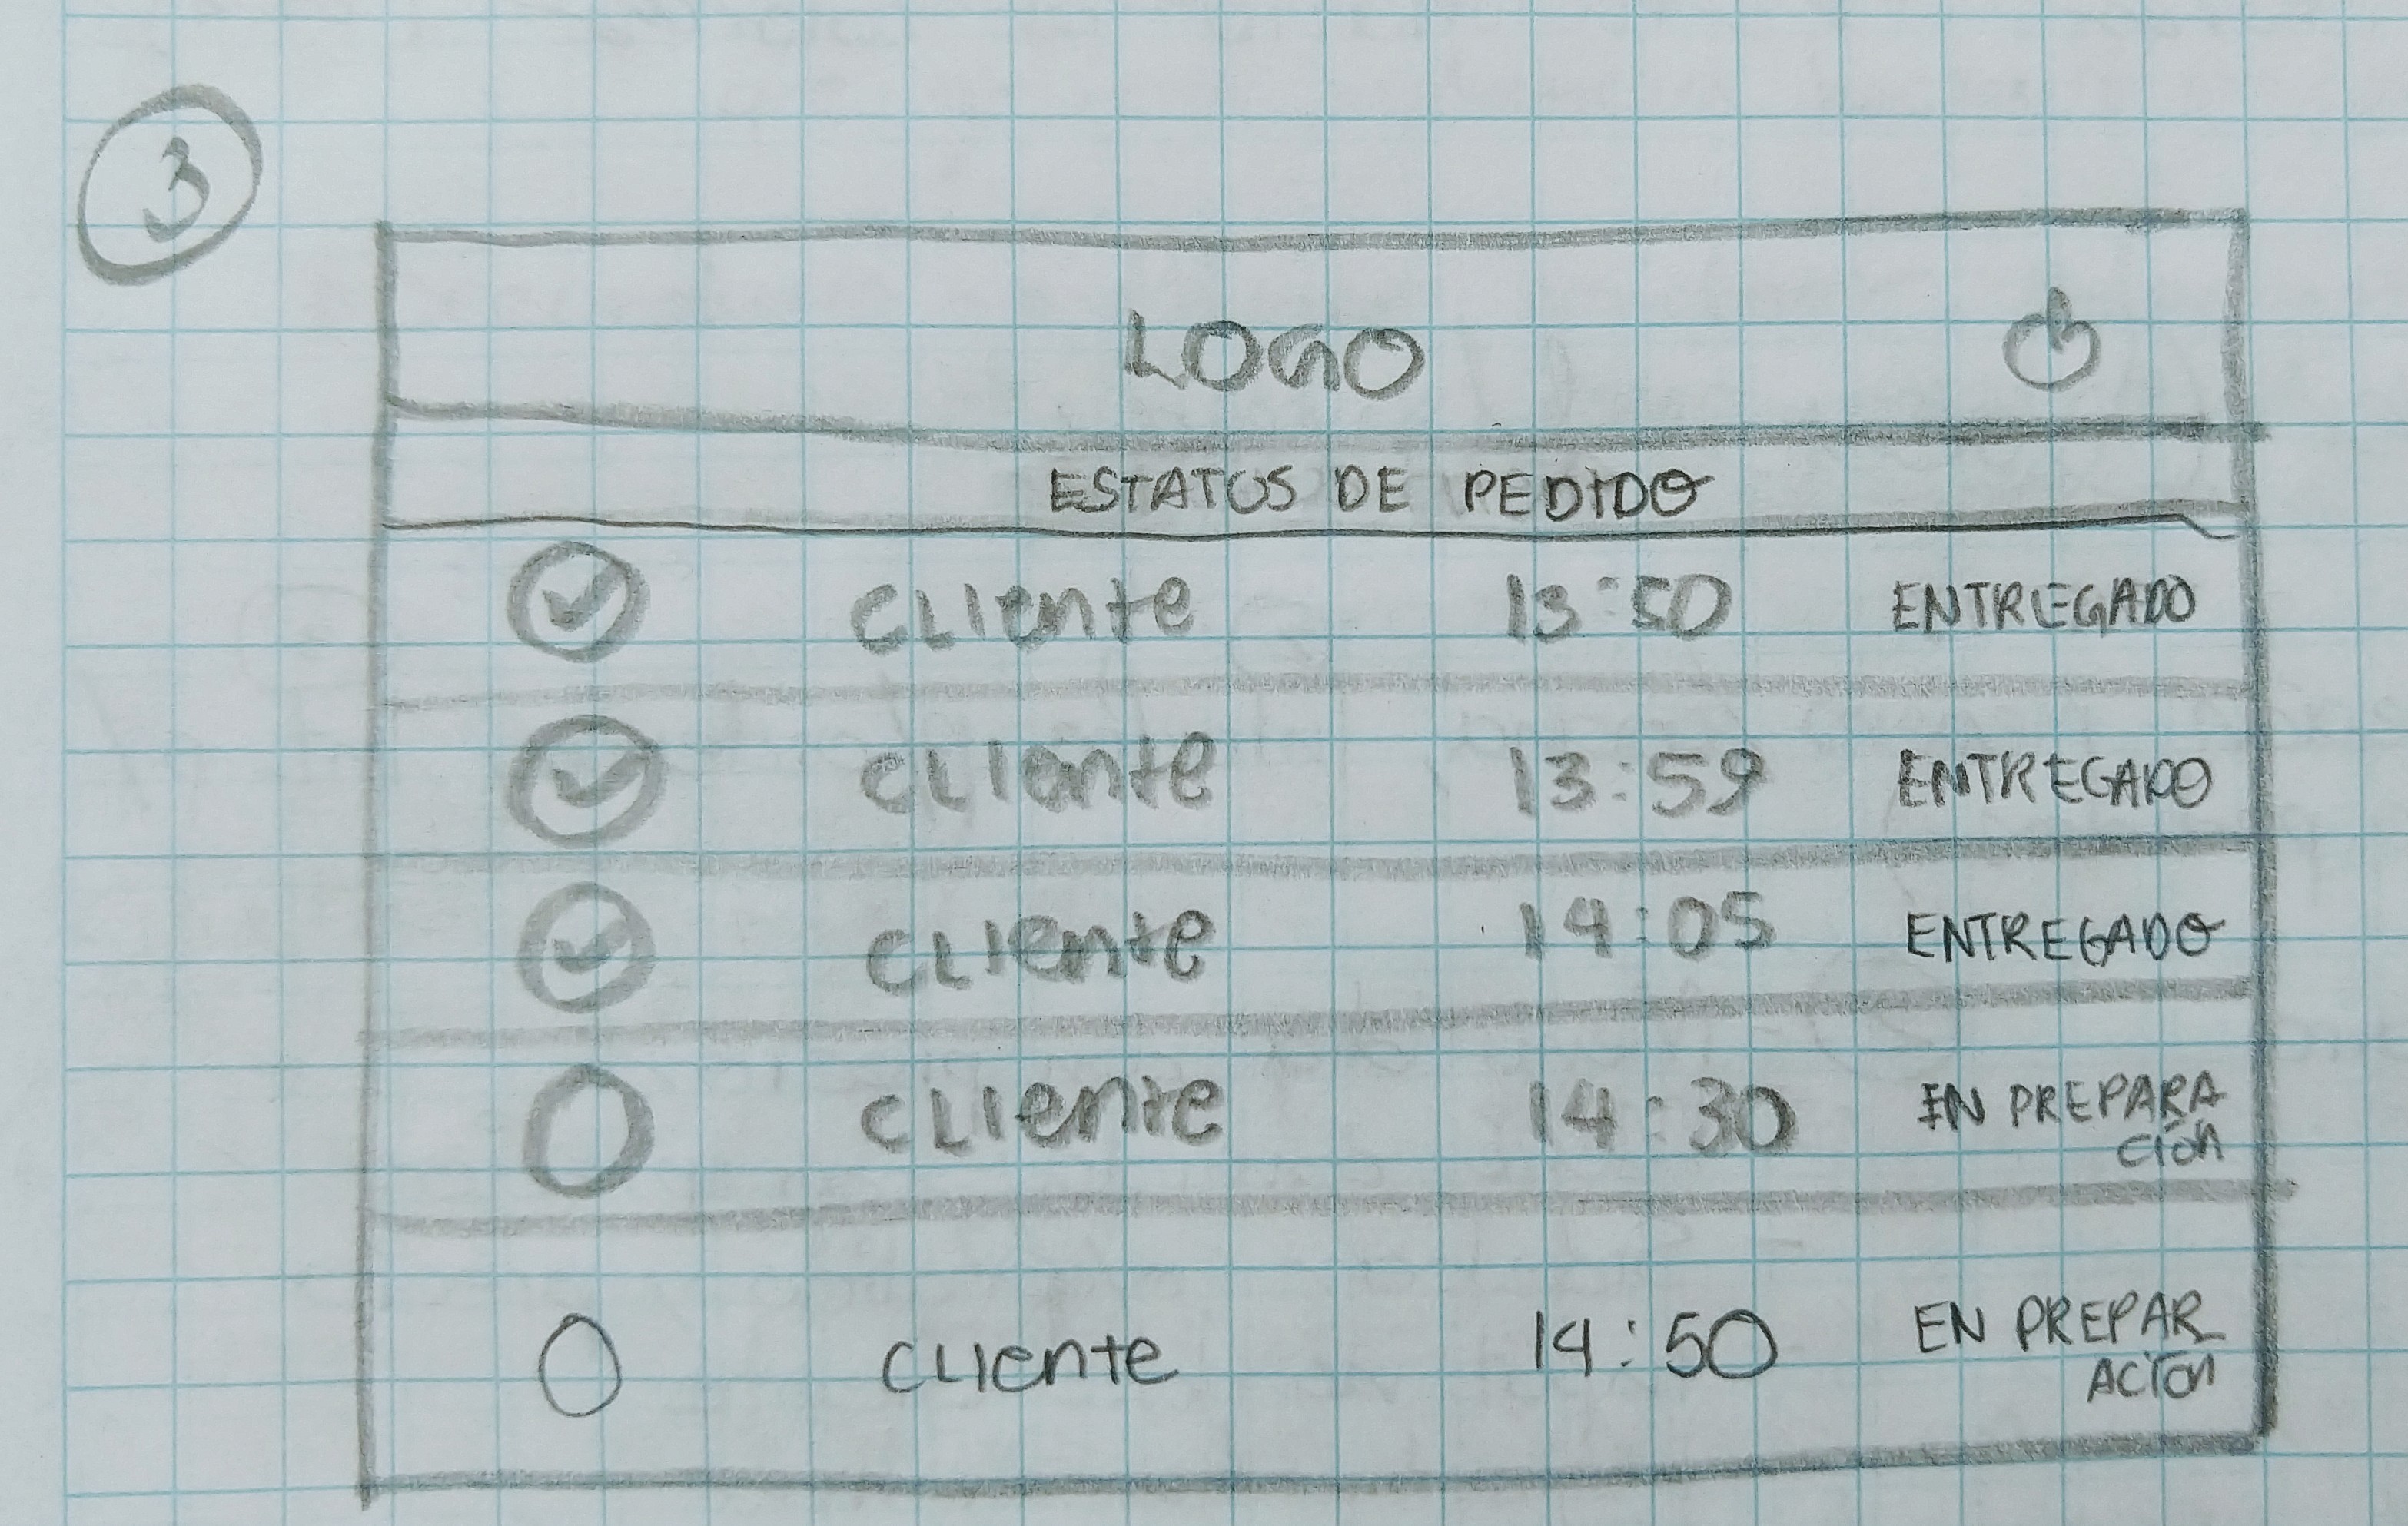 3
LOGO
ESTATUS DE PEDIDO
cliente 13:50 ENTREGADO
cliente 13:59 ENTREGADO
cliente 14:05 ENTREGADO
cliente 14:30 EN PREPARA
ción
cliente 14:50 EN PREPAR
ACIÓN